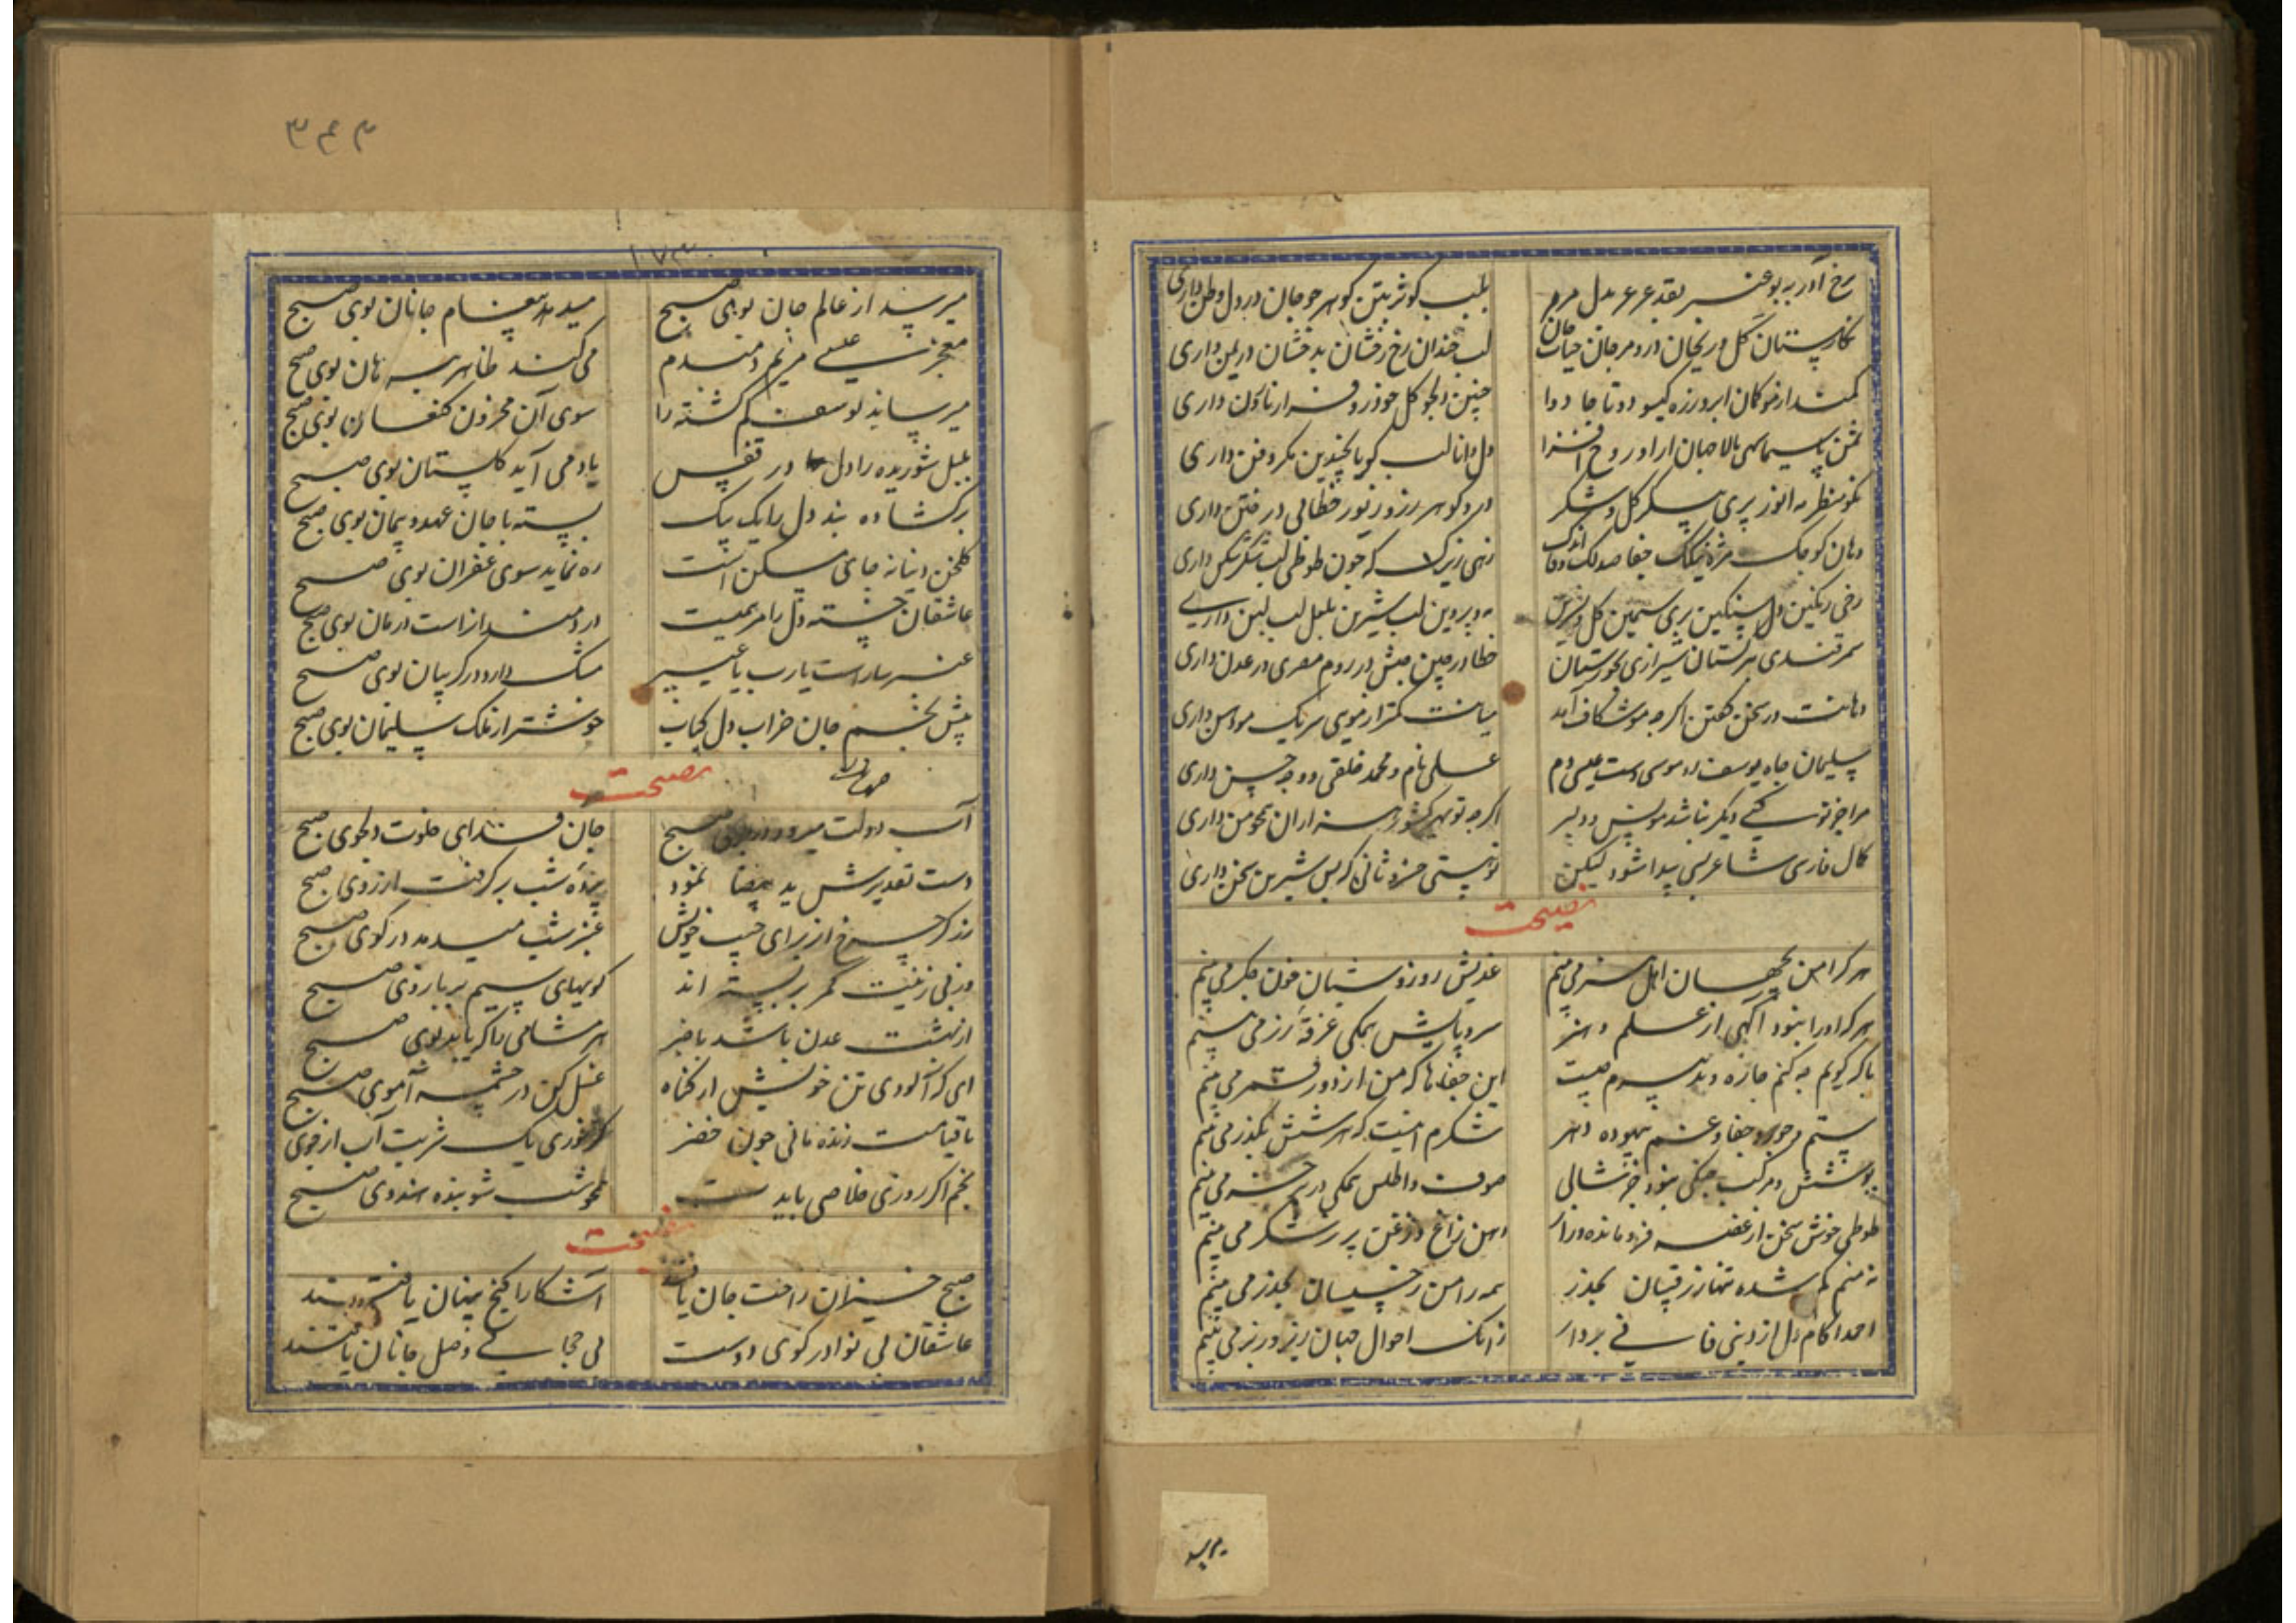 رخ آذر به بو عنبر بقد عرعر بدل مرمر
بلب کوثر بتن کوهر چو جان در دل وطن داری
نکارستان کل و ریحان در و مرجان حیات جان
لب خندان رخ رخشان بدخشان در یمن داری
کمند از مو کمان ابرو زره کیسو دوتا جادو
چنین دلجو کل خودرو داری
سمن سیما سهی بالا جهان ارا و روح افزا
دل دانا لب کویا بچندین مکر و فن داری
نکو منظر مه انور پری پیکر کل و شکر
در و کوهر زر و زیور خطائی در ختن داری
دهان کوچک مژه ناوک جفا صد لک وفا اندک
زهی زیرک که چون طوطی لب شکرشکن داری
رخی رنکین دل سنکین بری سیمین کل و نسرین
مه و پروین لب شیرین بلعل لب لبن داری
سمرقندی بترکستان شیرازی بخوزستان
خطا در چین حبش در روم مصری در عدن داری
دهانت در سخن کفتن اکرچه موشکاف آمد
میانت کمتر از موی سر یک مو داری
سلیمان جاه یوسف رو موسی دست عیسی دم
علی نام و محمد خلقی و وجه حسن داری
مرا جز تو کسی دیکر نباشد مونس و دلبر
اکرچه تو بهر کشور هزاران همچو من داری
کمال فارسی شاعر بسی پیدا شود لیکن
تو هستی خسرو ثانی که بس شیرین سخن داری
نصیحت
هر کرا من بجهان اهل هنر می بینم
غذیش روز و شبان خون جکر می بینم
هر کرا او را نبود آکهی از علم و هنر
سر و پایش همکی غرقه زر می بینم
با که کویم چه کنم چاره و تدبیرم چیست
این جفاها که من از دور قمر می بینم
ستم و جور و جفا و غم بیهوده دهر
شکرم اینست که هر شش بکذر می بینم
پوشش و مرکب جنکی نبود جز شالی
صوف و اطلس همکی در بر خر می بینم
طوطی خوش سخن از غصه فرو مانده و زار
دهن زاغ و زغن پر ز شکر می بینم
نه منم کم شده تنها ز رقیبان بحذر
همه را من ز خسیسان بحذر می بینم
احمدا کام دل از دنیی فانی بردار
زانک احوال جهان زیر و زبر می بینم
۳۴۳
۱۷۳
میرسد از عالم جان بوی صبح
میدهد پیغام جانان بوی صبح
معجزت عیسی مریم دمبدم
می کند ظاهر بهر هان بوی صبح
میرساند یوسف کم کشته را
سوی آن محزون کنعان بوی صبح
بلبل شوریده را دل در قفس
یاد می آید کلستان بوی صبح
برکشاده بند دل را یک بیک
بسته با جان عهد و پیمان بوی صبح
کلخن دنیا نه جای مسکن است
ره نماید سوی غفران بوی صبح
عاشقان خسته دل را مرهمیست
دردمندانراست درمان بوی صبح
عنبر ساراست یارب یا عبیر
مشک دارد در کریبان بوی صبح
پیش نجم جان خراب دل کباب
خوشتر از ملک سلیمان بوی صبح
نصیحت
آب دولت میرود در جوی صبح
جان فدای خلوت دلجوی صبح
دست تقدیرش ید بیضا نمود
پرده شب برکرفت از روی صبح
زرکر چرخ از برای جیب خویش
عنبر شب میدمد در کوی صبح
وز پی زینت کمر بربسته اند
کویهای سیم بر بازوی صبح
از بهشت عدن باشد باخبر
هر مشامی را که یابد بوی صبح
ای که آلودی تن خویش از کناه
غسل کن در چشمه آموی صبح
تا قیامت زنده مانی چون خضر
کر خوری یک شربت آب از جوی صبح
نجم اکر روزی خلاصی بایدت
همچو شب شو بنده هندوی صبح
نصیحت
صبح خیزان راحت جان یافتند
آشکارا کنج پنهان یافتند
عاشقان بی نوا در کوی دوست
بی حجابی وصل جانان یافتند